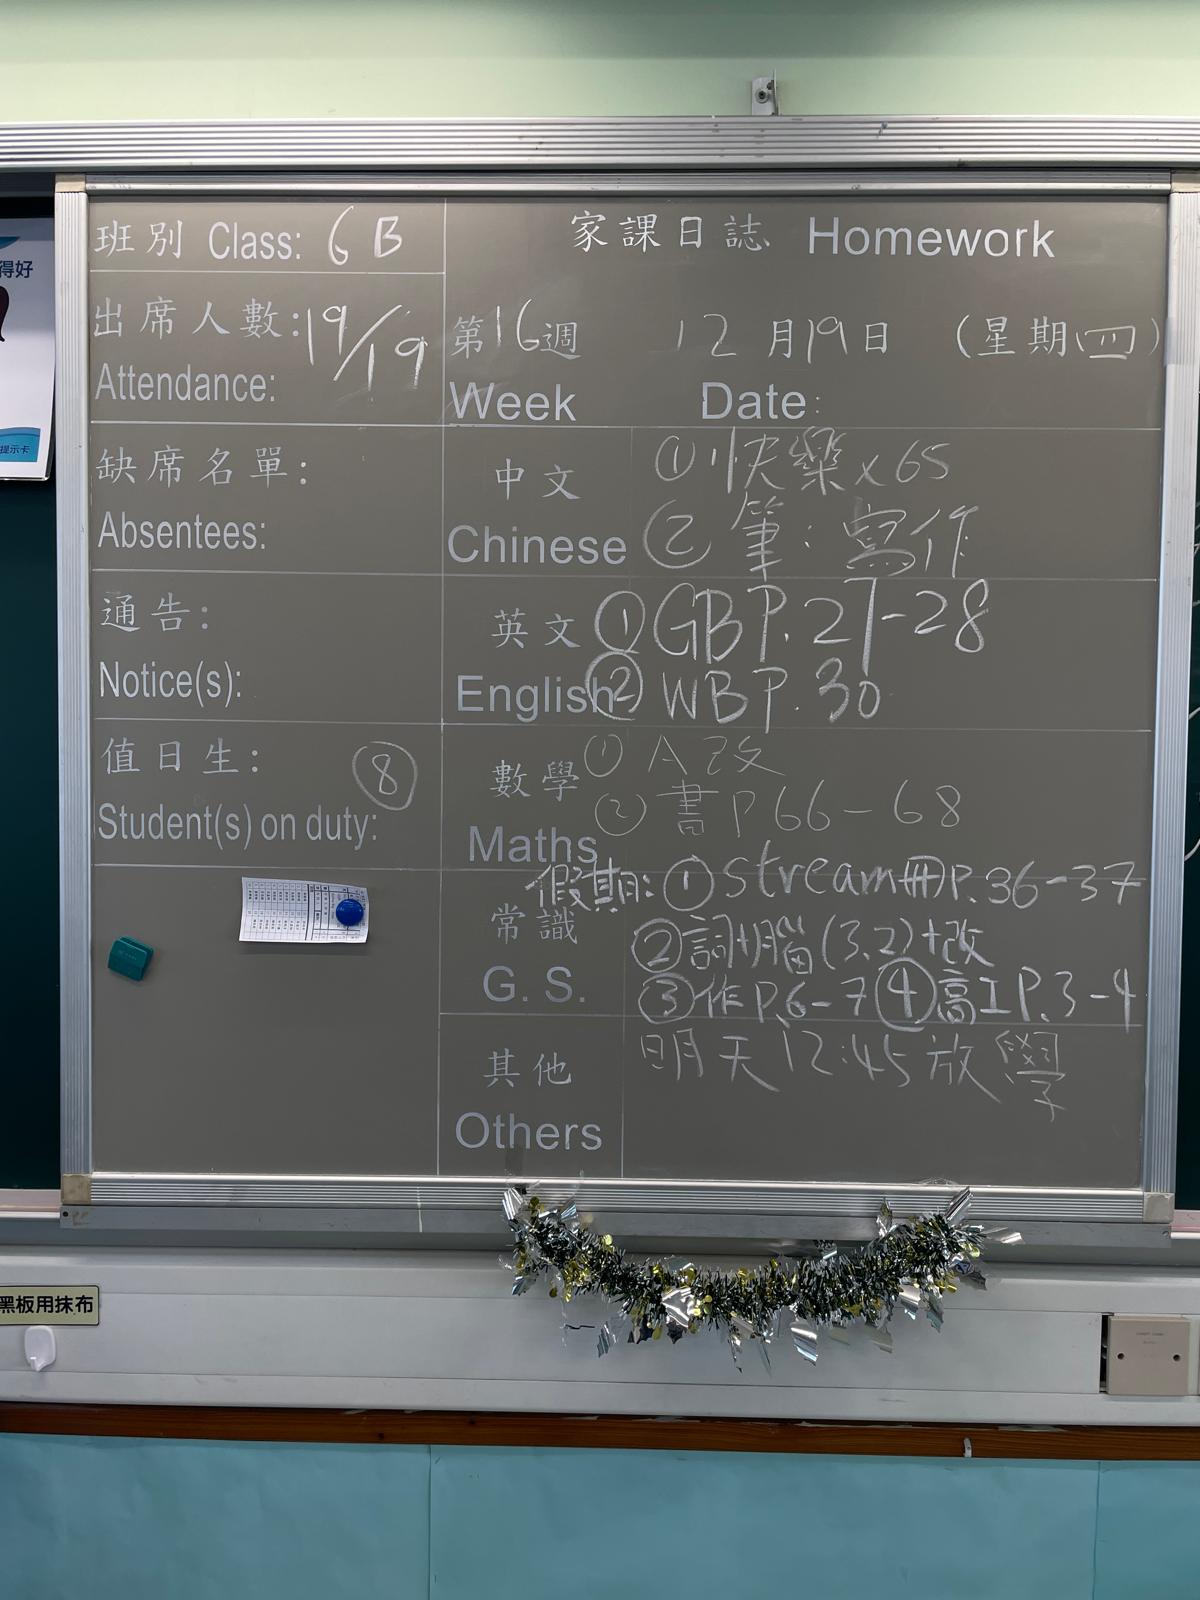 得好
提示卡
班別 Class: 6B
出席人數: 19/19
Attendance:
缺席名單:
Absentees:
通告:
Notice(s):
值日生: ⑧
Student(s) on duty:
家課日誌 Homework
第16週 12月19日 (星期四)
Week Date:
中文 ①快樂x65
Chinese ②筆:寫作
英文 ①GB P.27-28
English ②WB P.30
數學 ①A改
Maths ②書P66-68
假期:①stream冊P.36-37
常識 ②詞+腦(3.2)+改
G. S. ③作P.6-7 ④高工P.3-4
其他 明天12:45放學
Others
黑板用抹布